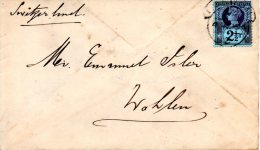 Switzerland.
Mr. Emanuel Isler
Wohlen
2½